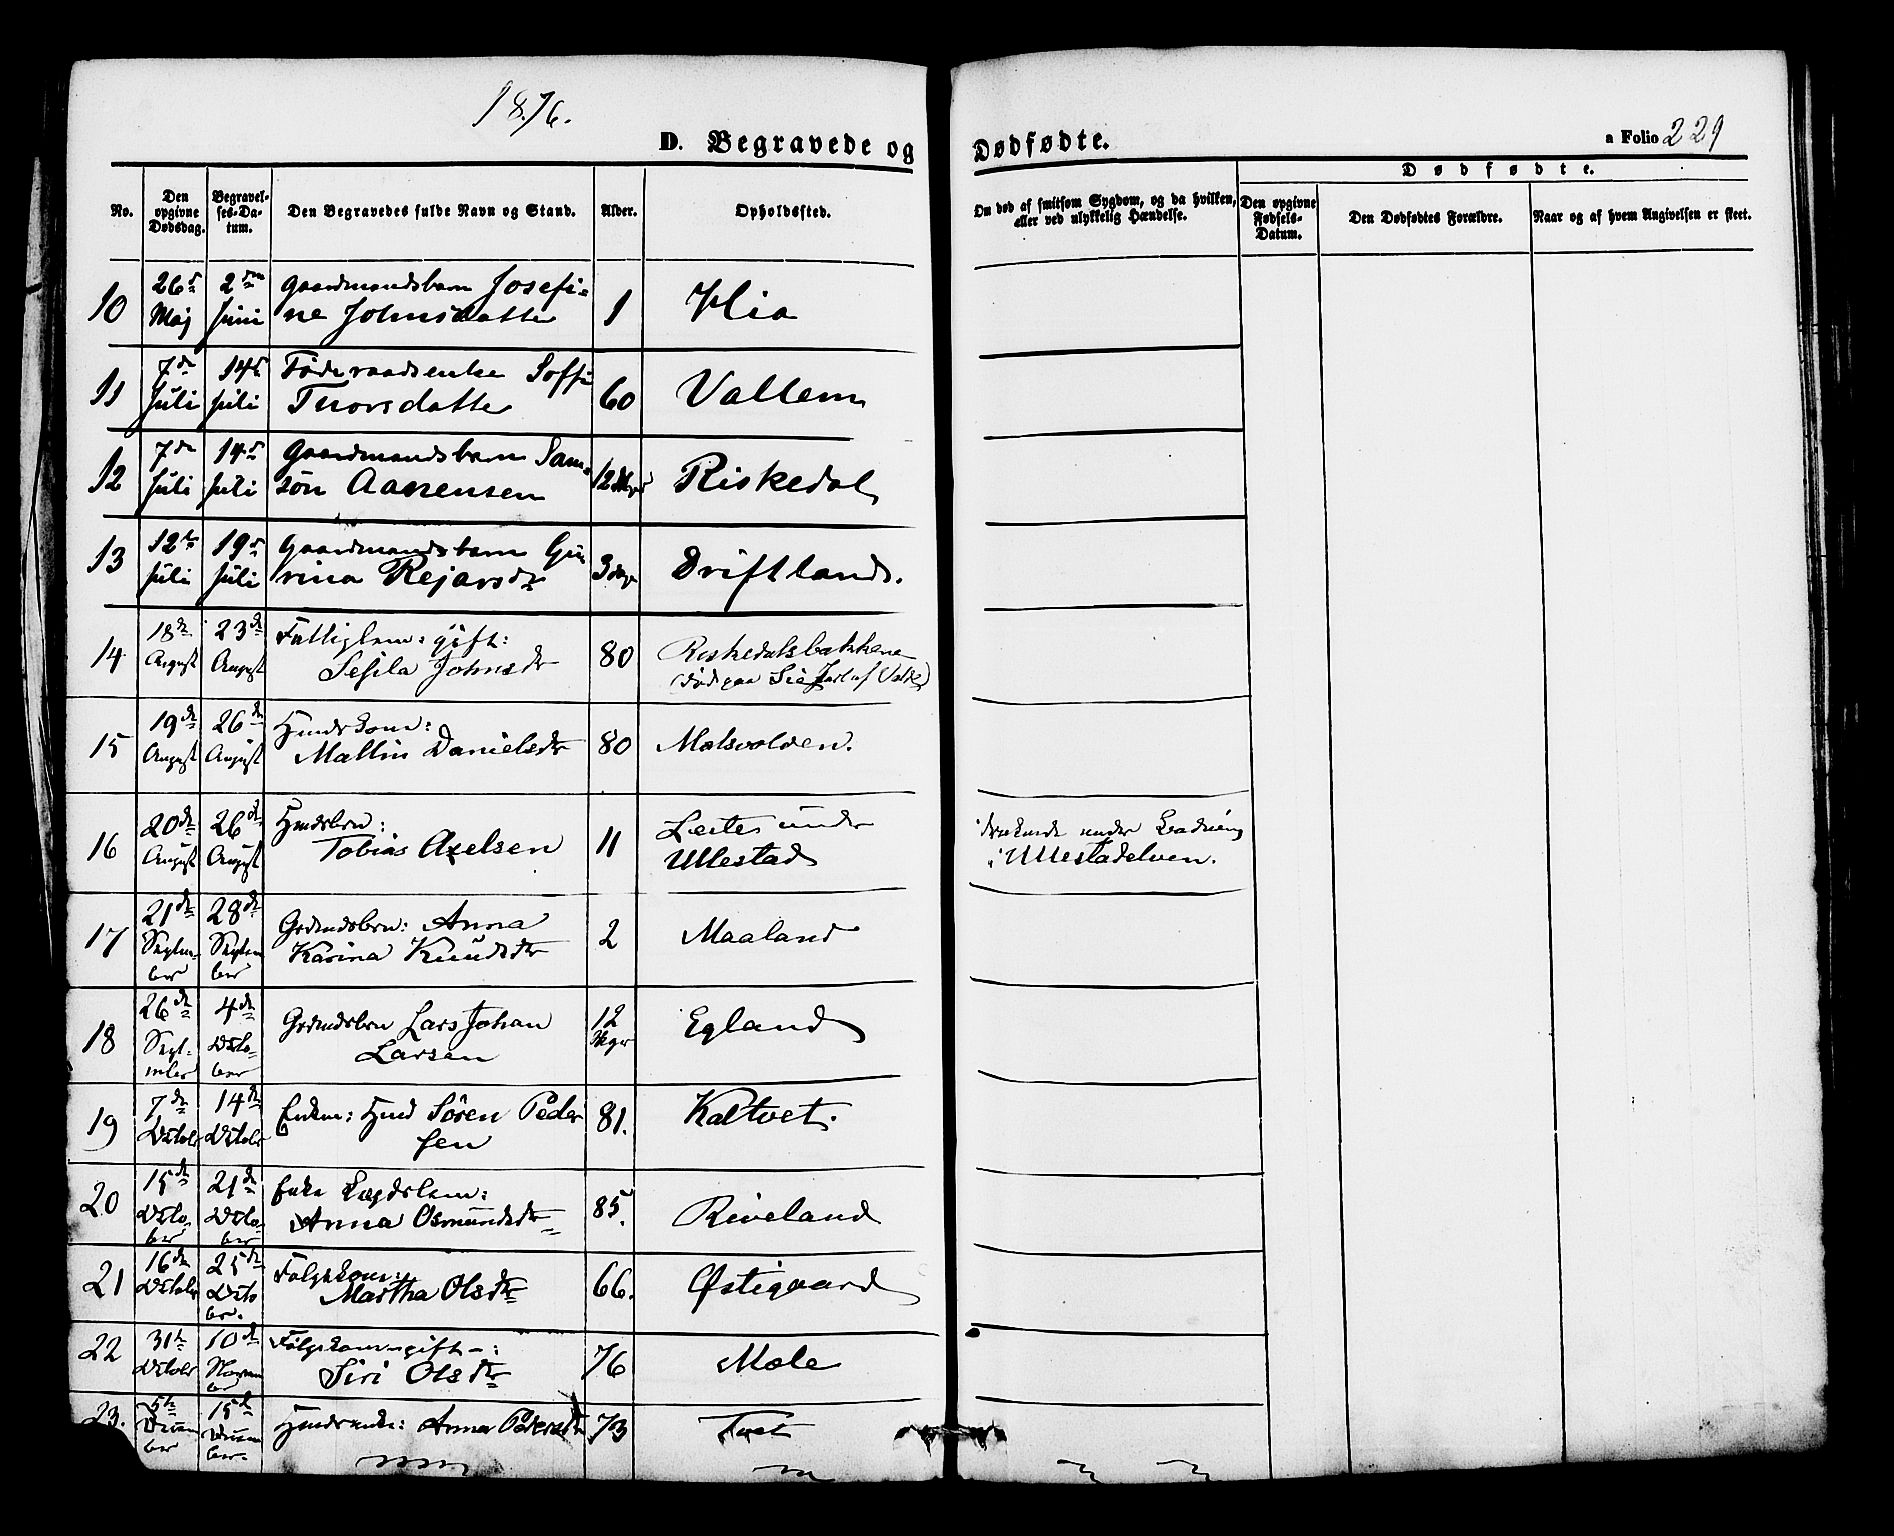 1876.
D. Begravede og Dødfødte.
a Folio 229
No.
Den opgivne Dødsdag.
Begravelses-Datum.
Den Begravedes fulde Navn og Stand.
Alder.
Opholdssted.
Om død af smitsom Sygdom, og da hvilken, eller ved ulykkelig Hændelse.
Dødfødte.
Den opgivne Fødsels-Datum.
Den Dødfødtes Forældre.
Naar og af hvem Angivelsen er skeet.
10 26 Maj 2 Juni Gaardmandsbarn Josefine Johnsdatter 1 Hia
11 7de Juli 14 Juli Föderaadsenke Soffi Thorsdatter 60 Vallem
12 7de Juli 14 Juli Gaardmandsbarn Samsön Aanensen 12 Riskedal
13 12te Juli 19 Juli Gaardmandsbarn Gurina Rejarsdr 3 Driftland.
14 18de August 23de August Fattiglem: gift: Sesila Johnsdr 80 Riskedalsbakkene
15 19de August 26de August Hmdskone: Mallin Danielsdr 80 Mælsvolden.
16 20de August 26de August Hmdsbrn: Tobias Axelsen 11 under Ullestad
under Badning i Ullestadelven.
17 21de September 28de September Grdmdsbrn: Anna Karina Knudsdr 2 Maaland
18 26de September 4de Oktober Grdmdsbrn Lars Johan Larsen 12 Egland
19 7de Oktober 14de Oktober Enkem: Hmd Sören Pedersen 81. Kaltvet.
20 15de Oktober 21de Oktober Enke Lægdslem: Anna Osmundsdr 85. Riveland
21 16de Oktober 25de Oktober Fölgekone: Martha Olsdr 66. Østigaard
22 31te Oktober 10de November Fölgekone gift: Siri Olsdr 76 Mæle
23. 5te December 15de December Hmdsenke: Anna Pedersdr 73 Tvet